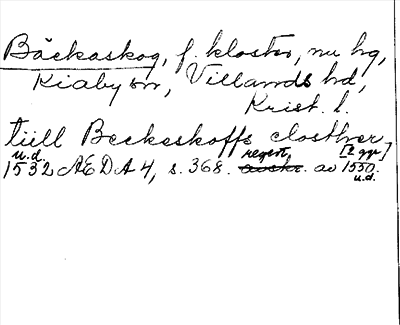 Bäckaskog, f. kloster, nu hg,
Kiaby sn, Villands hd,
Krist. l.
tiill Beckeskoffs closther
[2 ggr]
u.d.
1532 ÆDA 4, s. 368. regest, avskr. av 1550.
u.d.